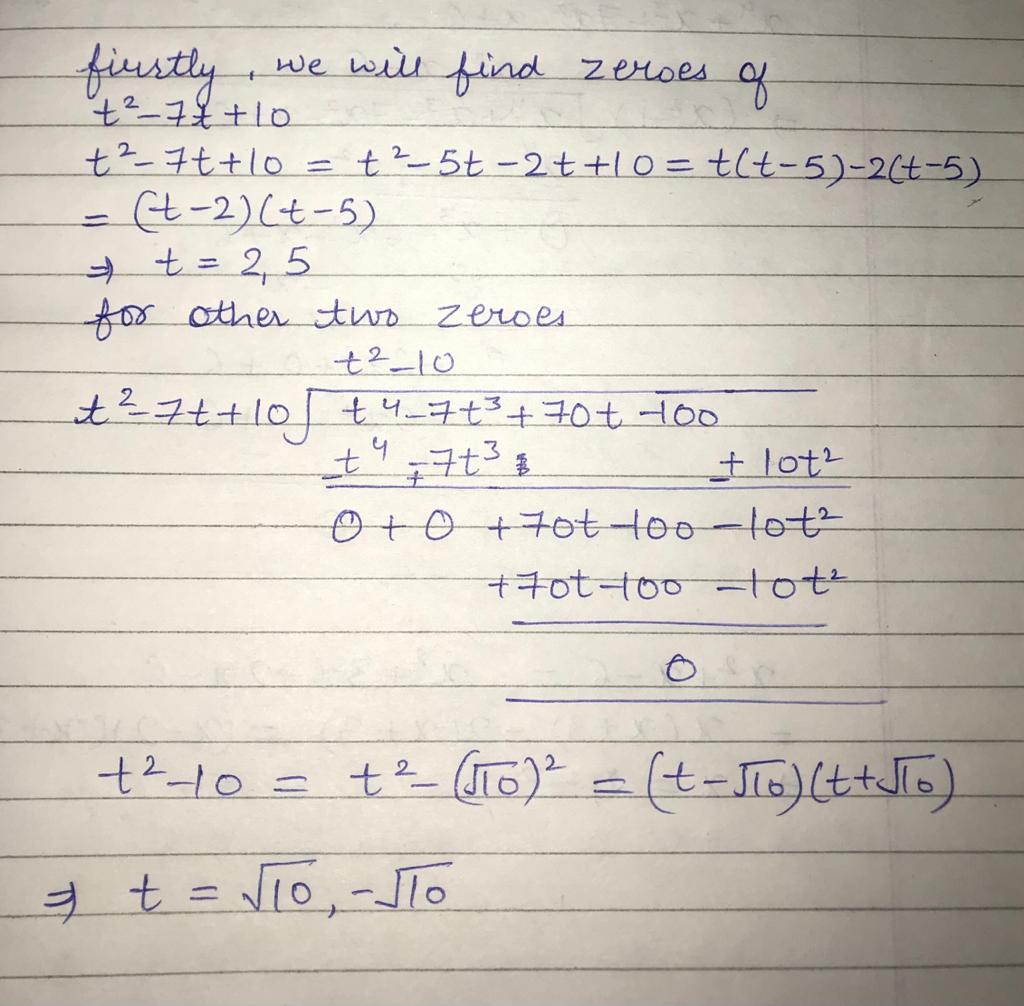 firstly, we will find zeroes of
t²-7t+10
t²-7t+10 = t²-5t-2t+10 = t(t-5)-2(t-5)
= (t-2)(t-5)
⇒ t = 2, 5
for other two zeroes
t²-10
t²-7t+10 ) t⁴-7t³+70t-100
t⁴-7t³ + 10t²
0+0 +70t-100-10t²
+70t-100 -10t²
0
t²-10 = t²-(√10)² = (t-√10)(t+√10)
⇒ t = √10, -√10